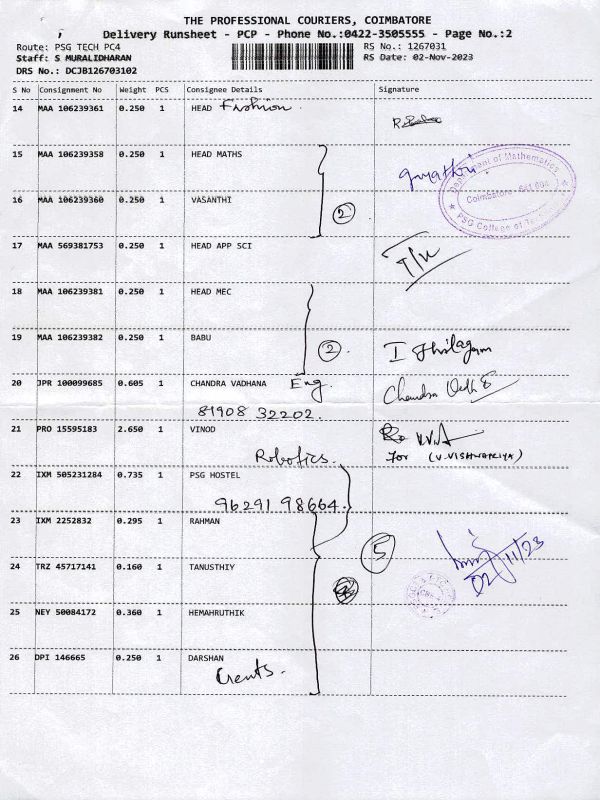 THE PROFESSIONAL COURIERS, COIMBATORE
Delivery Runsheet - PCP - Phone No.:0422-3505555 - Page No.:2
Route: PSG TECH PC4
RS No.: 1267031
Staff: S MURALIDHARAN
RS Date: 02-Nov-2023
DRS No.: DCJB126703102
S No Consignment No Weight PCS Consignee Details Signature
14 MAA 106239361 0.250 1 HEAD Fashion
15 MAA 106239358 0.250 1 HEAD MATHS
Department of Mathematics
Coimbatore - 641 004
PSG College of
16 MAA 106239360 0.250 1 VASANTHI
2
17 MAA 569381753 0.250 1 HEAD APP SCI
18 MAA 106239381 0.250 1 HEAD MEC
19 MAA 106239382 0.250 1 BABU
2 I Thilagam
20 JPR 100099685 0.605 1 CHANDRA VADHANA Eng.
81908 32202.
21 PRO 15595183 2.650 1 VINOD
For (V.VISHWAPRIYA)
Robotics.
22 IXM 505231284 0.735 1 PSG HOSTEL
96291 98664.
23 IXM 2252832 0.295 1 RAHMAN
5
02/11/23
24 TRZ 45717141 0.160 1 TANUSTHIY
25 NEY 50084172 0.360 1 HEMAHRUTHIK
26 DPI 146665 0.250 1 DARSHAN
Gents.